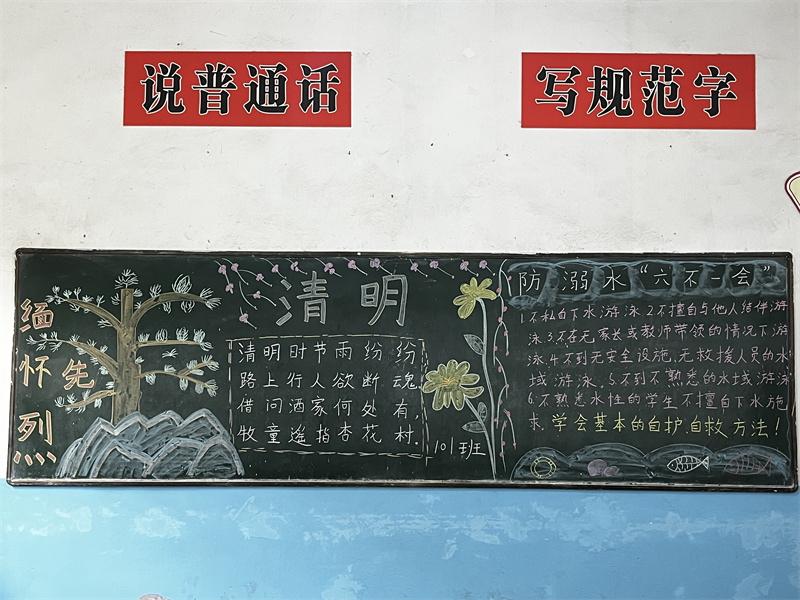 说普通话
写规范字
缅怀先烈
清明
清明时节雨纷纷
路上行人欲断魂
借问酒家何处有，
牧童遥指杏花村.
101班
防溺水“六不一会”
1.不私自下水游泳2.不擅自与他人结伴游
泳3.不在无家长或教师带领的情况下游
泳.4.不到无安全设施、无救援人员的水
域游泳.5.不到不熟悉的水域游泳
6.不熟悉水性的学生不擅自下水施
求.学会基本的自护、自救方法！